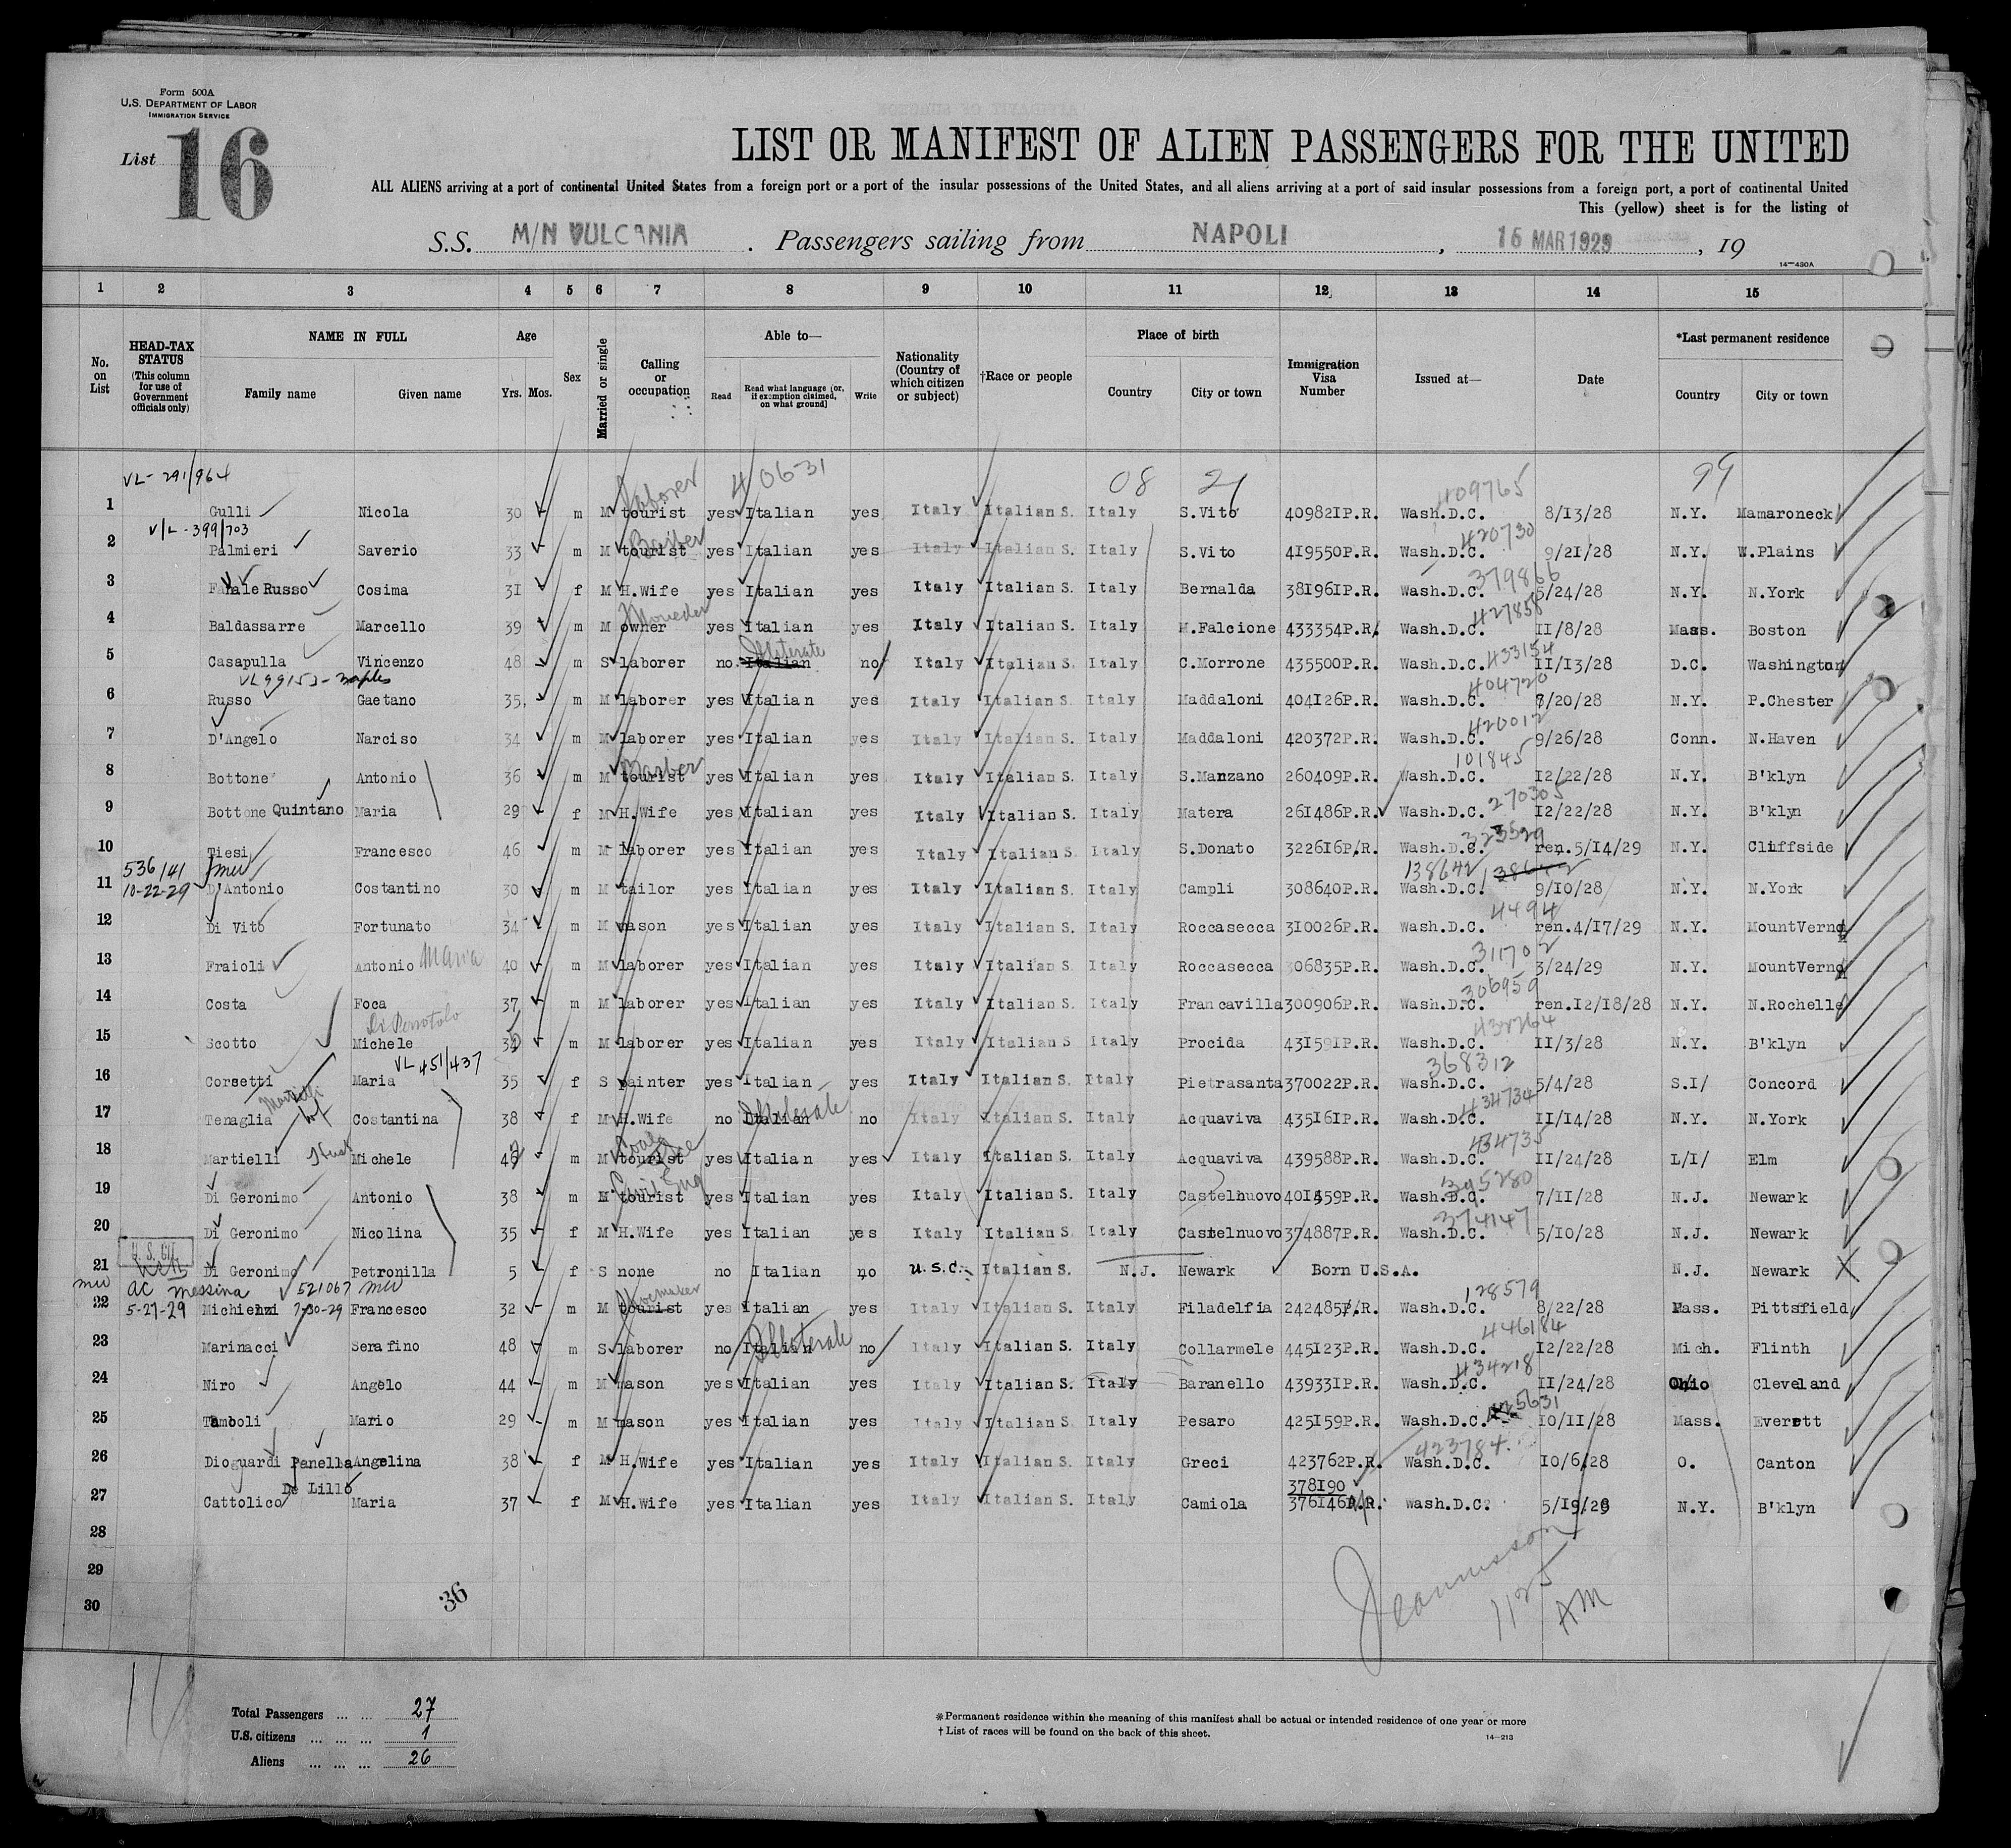 Form 500A
U.S. DEPARTMENT OF LABOR
IMMIGRATION SERVICE
List 16
LIST OR MANIFEST OF ALIEN PASSENGERS FOR THE UNITED
ALL ALIENS arriving at a port of continental United States from a foreign port or a port of the insular possessions of the United States, and all aliens arriving at a port of said insular possessions from a foreign port, a port of continental United
This (yellow) sheet is for the listing of
S.S. M/N VULCANIA . Passengers sailing from NAPOLI , 16 MAR 1929 , 19
14—430A
1 2 3 4 5 6 7 8 9 10 11 12 13 14 15
No. on List
HEAD-TAX STATUS (This column for use of Government officials only)
NAME IN FULL
Family name Given name
Age
Yrs. Mos.
Sex
Married or single
Calling or occupation
Able to—
Read Read what language (or, if exemption claimed, on what ground) Write
Nationality (Country of which citizen or subject)
†Race or people
Place of birth
Country City or town
Immigration Visa Number
Issued at—
Date
*Last permanent residence
Country City or town
VL-291/964 laborer 4/06-31 08 21 409765 99
1 Gulli Nicola 30 m M tourist yes Italian yes Italy Italian S. Italy S.Vito 409821P.R. Wash.D.C. 8/13/28 N.Y. Mamaroneck
V/L-399/703 Barber 420730
2 Palmieri Saverio 33 m M tourist yes Italian yes Italy Italian S. Italy S.Vito 419550P.R. Wash.D.C. 9/21/28 N.Y. W.Plains
379866
3 Russo Cosima 31 f M H.Wife yes Italian yes Italy Italian S. Italy Bernalda 381961P.R. Wash.D.C. 5/24/28 N.Y. N.York
427858
4 Baldassarre Marcello 39 m M owner yes Italian yes Italy Italian S. Italy M.Falcione 433354P.R. Wash.D.C. 11/8/28 Mass. Boston
Illiterate 433154
5 Casapulla Vincenzo 48 m S laborer no Italian no Italy Italian S. Italy C.Morrone 435500P.R. Wash.D.C. 11/13/28 D.C. Washington
VL 99153-naples 404720
6 Russo Gaetano 35 m M laborer yes Italian yes Italy Italian S. Italy Maddaloni 404126P.R. Wash.D.C. 7/20/28 N.Y. P.Chester
420012
7 D'Angelo Narciso 34 m M laborer yes Italian yes Italy Italian S. Italy Maddaloni 420372P.R. Wash.D.C. 9/26/28 Conn. N.Haven
Barber 101845
8 Bottone Antonio 36 m M tourist yes Italian yes Italy Italian S. Italy S.Manzano 260409P.R. Wash.D.C. 12/22/28 N.Y. B'klyn
270305
9 Bottone Quintano Maria 29 f M H.Wife yes Italian yes Italy Italian S. Italy Matera 261486P.R. Wash.D.C. 12/22/28 N.Y. B'klyn
323529
10 Tiesi Francesco 46 m M laborer yes Italian yes Italy Italian S. Italy S.Donato 322616P.R. Wash.D.C. ren.5/14/29 N.Y. Cliffside
536/41 138642
11 10-22-29 D'Antonio Costantino 30 m M tailor yes Italian yes Italy Italian S. Italy Campli 308640P.R. Wash.D.C. 9/10/28 N.Y. N.York
4494
12 Di Vito Fortunato 34 m M mason yes Italian yes Italy Italian S. Italy Roccasecca 310026P.R. Wash.D.C. ren.4/17/29 N.Y. MountVerno
311702
13 Fraioli Antonio Maria 40 m M laborer yes Italian yes Italy Italian S. Italy Roccasecca 306835P.R. Wash.D.C. 3/24/29 N.Y. MountVerno
306950
14 Costa Foca 37 m M laborer yes Italian yes Italy Italian S. Italy Francavilla 300906P.R. Wash.D.C. ren.12/18/28 N.Y. N.Rochelle
15 Scotto Michele m M laborer yes Italian yes Italy Italian S. Italy Procida 431591P.R. Wash.D.C. 11/3/28 N.Y. B'klyn
VL 451/437 368312
16 Corsetti Maria 35 f S painter yes Italian yes Italy Italian S. Italy Pietrasanta 370022P.R. Wash.D.C. 5/4/28 S.I/ Concord
Illiterate 434734
17 Tenaglia Costantina 38 f M H.Wife no Italian no Italy Italian S. Italy Acquaviva 435161P.R. Wash.D.C. 11/14/28 N.Y. N.York
434735
18 Martielli Michele m M tourist yes Italian yes Italy Italian S. Italy Acquaviva 439588P.R. Wash.D.C. 11/24/28 L/I/ Elm
Civil Eng 395280
19 Di Geronimo Antonio 38 m M tourist yes Italian yes Italy Italian S. Italy Castelnuovo 401459P.R. Wash.D.C. 7/11/28 N.J. Newark
374147
20 Di Geronimo Nicolina 35 f M H.Wife yes Italian yes Italy Italian S. Italy Castelnuovo 374887P.R. Wash.D.C. 5/10/28 N.J. Newark
U.S. CIT.
21 Di Geronimo Petronilla 5 f S none no Italian no U.S.C. Italian S. N.J. Newark Born U.S.A. N.J. Newark
AC messina 521067 Shoemaker 128579
22 5-27-29 Michienzi 7-30-29 Francesco 32 m M tourist yes Italian yes Italy Italian S. Italy Filadelfia 242485P.R. Wash.D.C. 8/22/28 Mass. Pittsfield
Illiterate 446184
23 Marinacci Serafino 48 m S laborer no Italian no Italy Italian S. Italy Collarmele 445123P.R. Wash.D.C. 12/22/28 Mich. Flinth
434218
24 Niro Angelo 44 m M mason yes Italian yes Italy Italian S. Italy Baranello 439331P.R. Wash.D.C. 11/24/28 Ohio Cleveland
425631
25 Tamboli Mario 29 m M mason yes Italian yes Italy Italian S. Italy Pesaro 425159P.R. Wash.D.C. 10/11/28 Mass. Everett
423784
26 Dioguardi Panella Angelina 38 f M H.Wife yes Italian yes Italy Italian S. Italy Greci 423762P.R. Wash.D.C. 10/6/28 O. Canton
De Lillo 378190
27 Cattolico Maria 37 f M H.Wife yes Italian yes Italy Italian S. Italy Camiola 376146P.R. Wash.D.C. 5/19/28 N.Y. B'klyn
28
29
30
36
1125 AM
Total Passengers ... ... 27
U.S. citizens ... ... ... 1
Aliens ... ... ... 26
*Permanent residence within the meaning of this manifest shall be actual or intended residence of one year or more
† List of races will be found on the back of this sheet.
14—213